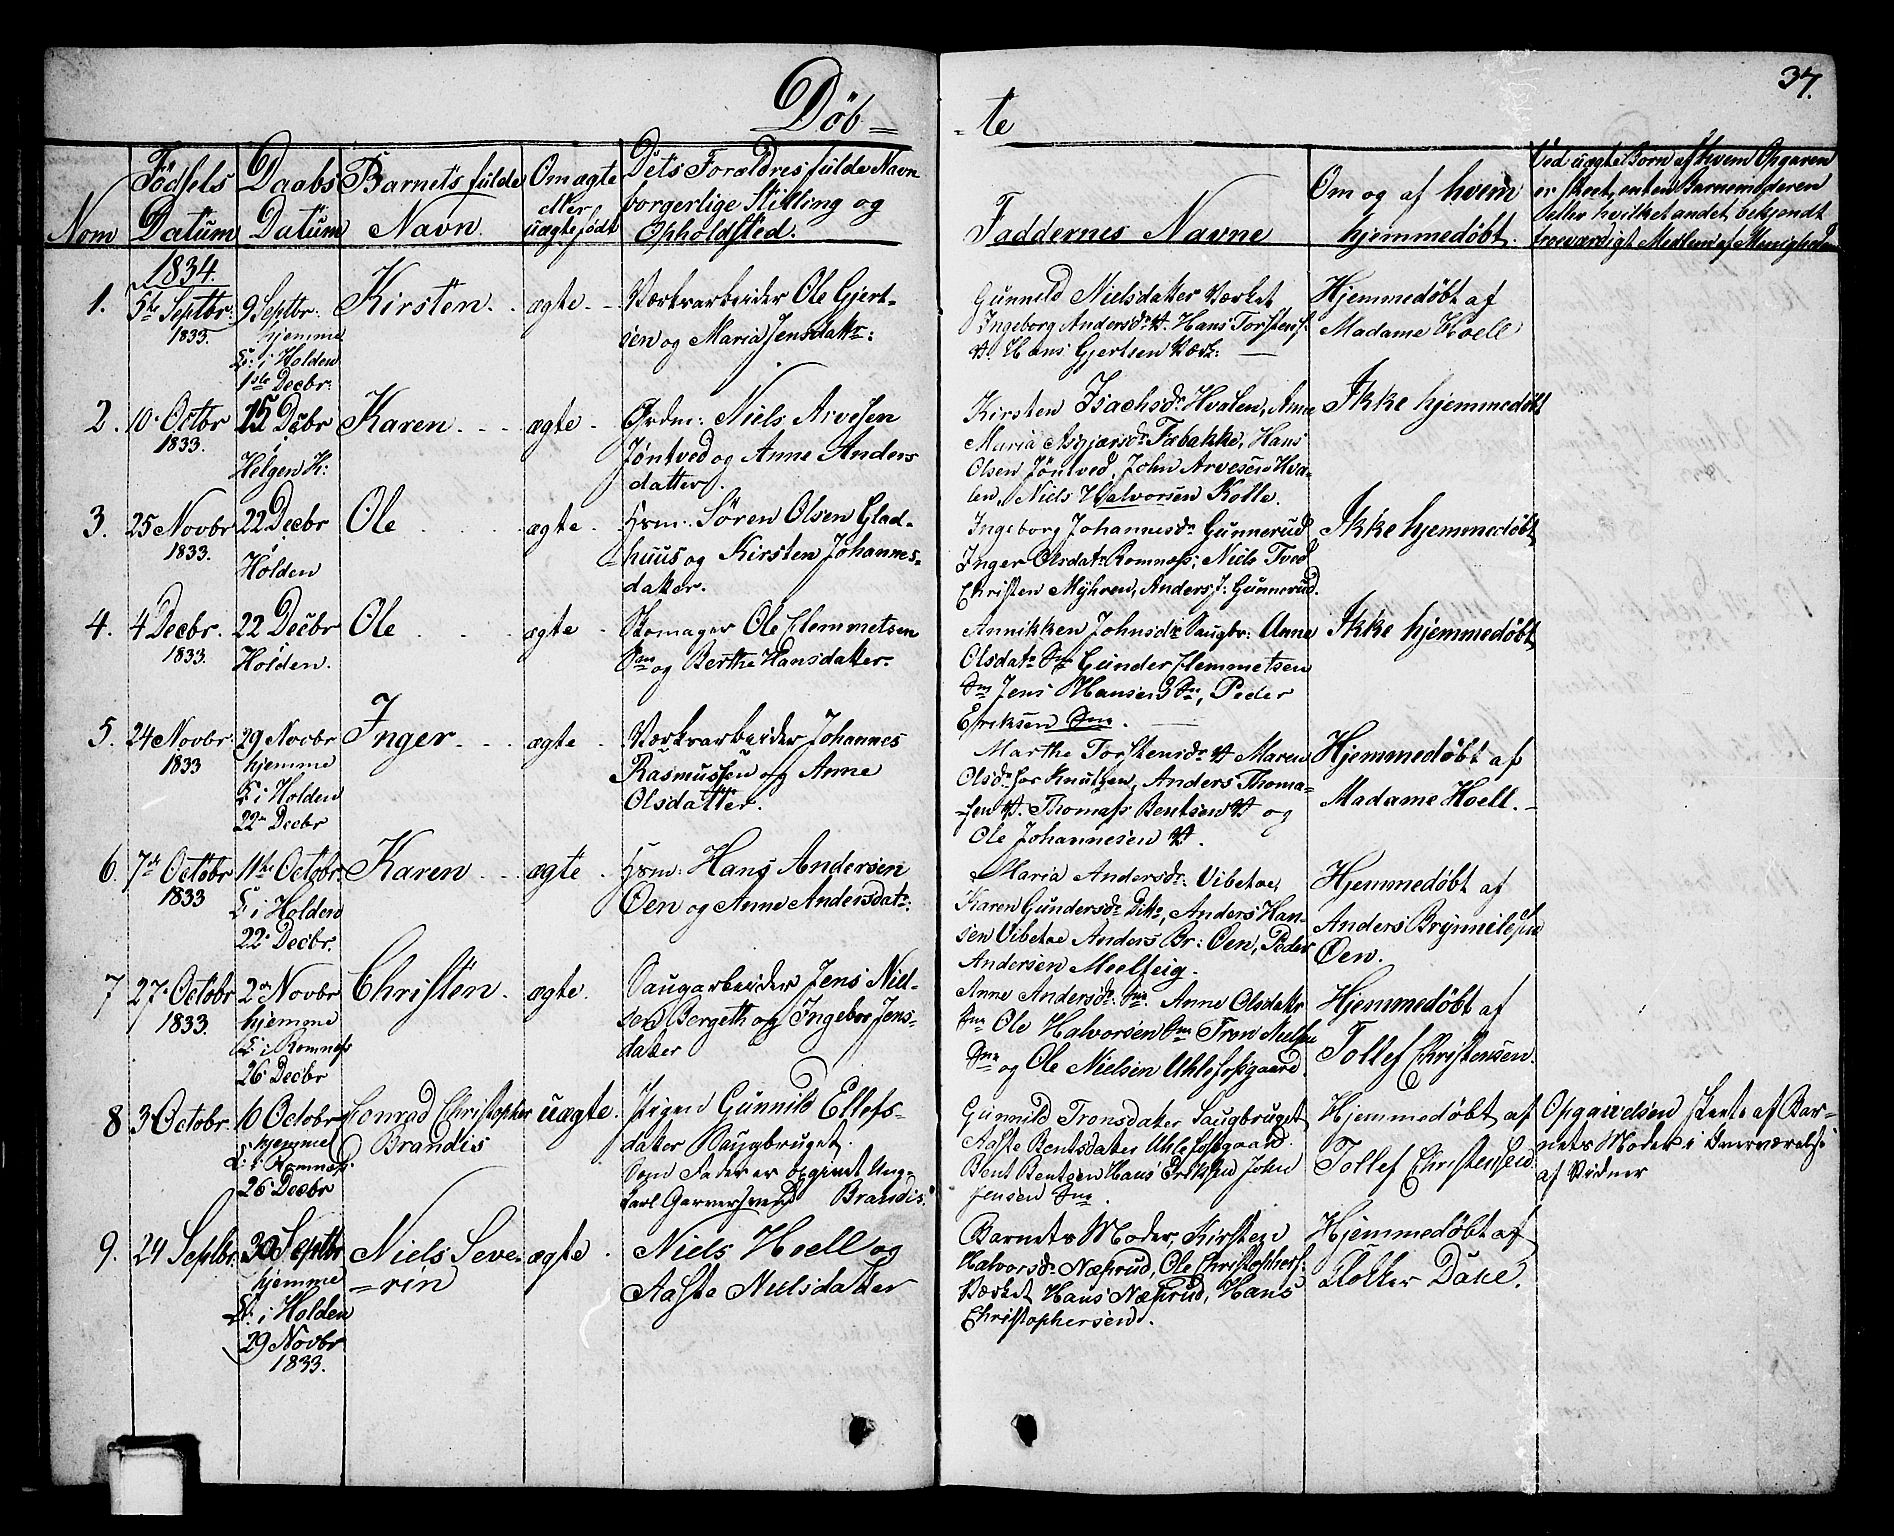 37.
Døb=
-te
Nom
Födsels
Datum
Daabs
Datum
Barnets fulde
Navn.
Om ægte
eller
uægte født
Dets Forældres fulde Navn
borgerlige Stilling og
Opholdsted.
Faddernes Navne
Om og af hvem
hjemmedøbt.
Ved uægte Børn af hvem Opgaven
er skeet, enten Barnemoderen
eller hvilket andet bekjendt
troeværdigt Medlem af Menigheden
1834.
1.
5te Septbr:
1833.
9 Septbr:
hjemme
i Holden
1ste Decbr:
Kirsten
ægte
Værksarbeider Ole Gjert-
sen og Maria Jensdatr:
Gunnild Nielsdatter Værket
Ingeborg Andersdr Hans Torstens.
Hans Gjertsen Værk:
Hjemmedøbt af
Madame Hoell
2.
10 Octbr
1833.
15 Decbr
i
Helgen K:
Karen
ægte
Grdm: Niels Arvesen
Jøntved og Anne Anders
datter.
Kirsten Isachsdr Hvalen, Anne
Maria Asgjersdr Fæbakke, Hans
Olsen Jøntved, John Arvesen Hva-
len, Niels Halvorsen Kolle.
Ikke hjemmedøbt
3.
25 Novbr
1833.
22 Decbr
i
Holden
Ole
ægte
Hsm: Søren Olsen Glad-
huus og Kirsten Johannes-
datter.
Ingeborg Johannesdr Gunnerud
Inger Olsdatr Romness; Niels Tved
Christen Myhren, Anders J: Gunnerud.
Ikke hjemmedøbt
4.
4 Decbr.
1833.
22 Decbr
i
Holden.
Ole
ægte
Skomager Ole Clemmetsen
og Berthe Hansdatter.
Annikken Johnsdr Saugbr: Anne
Olsdatr Gunder Clemmetsen
Jens Hansen Peder
Eriksen
Ikke hjemmedøbt
5.
24 Novbr.
1833
29 Novbr
hjemme
i Holden
22 Decbr
Inger
ægte
Værksarbeider Johannes
Rasmussen og Anne
Olsdatter.
Marthe Torstensdr Maren
Olsdr for Knutsen, Anders Thoma-
sen Thomas Bentsen og
Ole Johannesen
Hjemmedøbt af
Madame Hoell.
6.
7de Octobr
1833
11te Octobr.
i Holden
22 Decbr.
Karen
ægte
Hsm: Hans Andersen
Øen og Anne Andersdatr:
Maria Andersdr: Vibetoe,
Karen Gundersdr Anders Han-
sen Vibetoe Anders Br: Øen, Peder
Andersen Meelteig.
Hjemmedøbt af
Anders Brynnilsen
Øen.
7
27 Octobr
1833.
2den Novbr
hjemme
i Romness
26 Decbr
Christen
ægte.
Saugarbeider Jens Niel-
sen Bergeth og Ingebor Jens-
datter
Anne Andersdr: Anne Olsdatr
Ole Halvorsen Tron Nielsen
og Ole Nielsen Uhlefosgaard.
Hjemmedøbt af
Tollef Christensen.
8
3 Octobr.
6 Octobr
hjemme
i Romness
26 Decbr
Conrad Christopher
Brandis
uægte.
Pigen Gunnild Ellefs-
datter Saugbruget.
Som Fader er opgivet Ung-
karl Garversvend Brandis.
Gunnild Tronsdatter Saugbruget
Aaste Bentsdatter Uhlefosgaard.
Bent Bentsen Hans Eriksen John
Jensen
Hjemmedøbt af
Tollef Christensen
Opgavelsen skeete af Bar-
nets Moder i Overværelse
af Vidner
9.
24 Septbr.
30 Septbr
hjemme
i Holden
29 Novbr
1833.
Niels Seve-
=rin
ægte
Niels Hoell og
Aaste Nielsdatter
Barnets Moder, Kirstene
Halvorsdr Næsrud, Ole Christophers:
Værket, Hans Næsrud, Hans
Christophersen.
Hjemmedøbt af